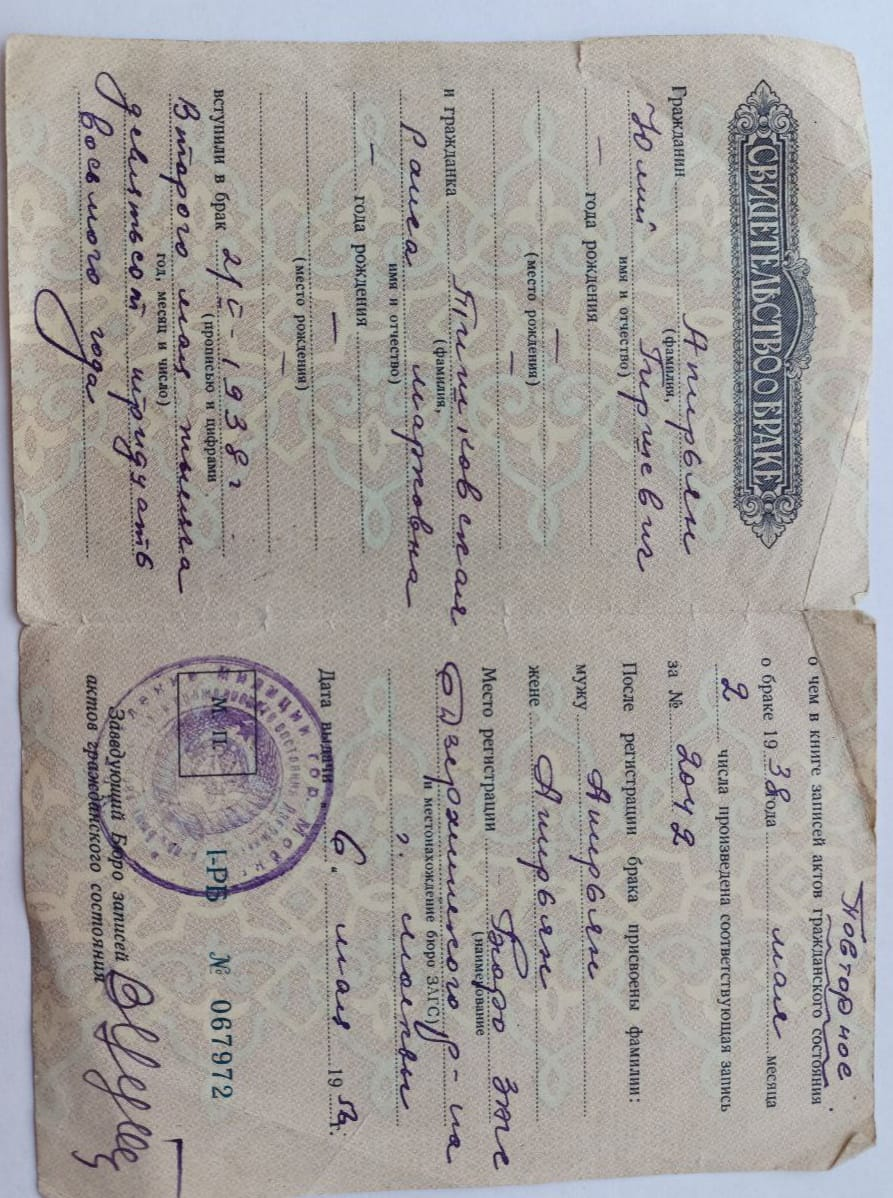 СВИДЕТЕЛЬСТВО О БРАКЕ
Гражданин Апирьян
(фамилия,
Юлий Гиршевич
имя и отчество)
— года рождения
—
(место рождения)
—
и гражданка Тишковская
(фамилия,
Раиса Марковна
имя и отчество)
— года рождения
—
(место рождения)
—
вступили в брак 2/V-1938 г
(прописью и цифрами
Второго мая тысяча
год, месяц и число)
девятьсот тридцать
восьмого года
Повторное
о чем в книге записей актов гражданского состояния
о браке 1938 года мая месяца
2 числа произведена соответствующая запись
за № 2042
После регистрации брака присвоены фамилии:
мужу Апирьян
жене Апирьян
Место регистрации Бюро загс
(наименование
Дзержинского р-на
и местонахождение бюро ЗАГС)
г. Москвы
Дата выдачи „6“ мая 195 г.
М. П.
I-РБ № 067972
Заведующий Бюро записей
актов гражданского состояния